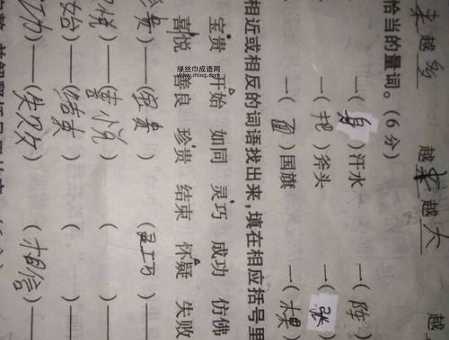 来越多 越来越大 越
恰当的量词。(6分)
一(身)汗水 一(阵)
一(把)斧头 一(张)
一(面)国旗 一(棵)
相近或相反的词语找出来,填在相应括号里
宝贵 开始 如同 灵巧 成功 仿佛
喜悦 善良 珍贵 结束 怀疑 失败
贵)——(宝贵) ( )——
)——(喜悦) ( )——
始)——(结束) ( )——
)——(失败) (相信)——
绿丝巾成语网